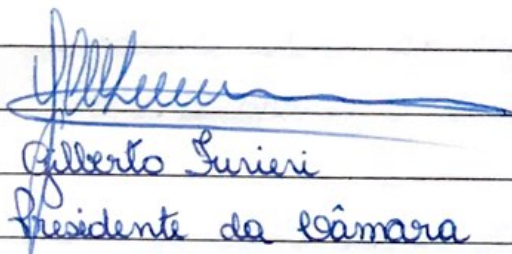 Gilberto Furieri
Presidente da Câmara